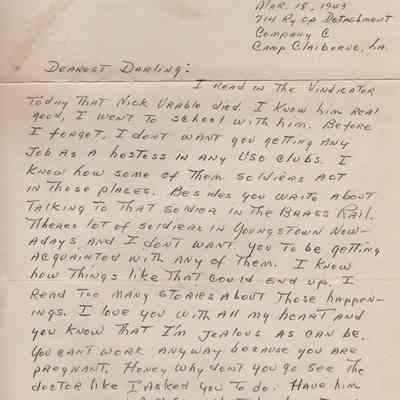 Mar. 18, 1943
714 Ry Op Detachment
Company C
Camp Claiborne, La.
Dearest Darling:
I read in the Vindicator
today that Nick Vrable died. I knew him real
good, I went to school with him. Before
I forget, I dont want you getting any
job as a hostess in any Uso clubs. I
know how some of them soldiers act
in those places. Besides you write about
talking to that soldier in the Brass Rail.
Theres lot of soldiers in Youngstown now-
adays, and I dont want you to be getting
acquainted with any of them. I know
how things like that could end up. I
read too many stories about those happen-
ings. I love you with all my heart and
you know that I'm jealous as can be.
You cant work anyway because you are
pregnant. Honey why dont you go see the
doctor like I asked you to do. Have him